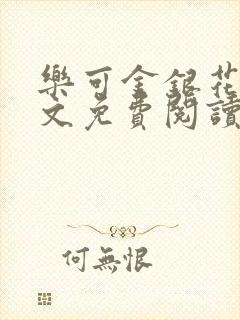 樂可金銀花
文免費閱讀
何無恨